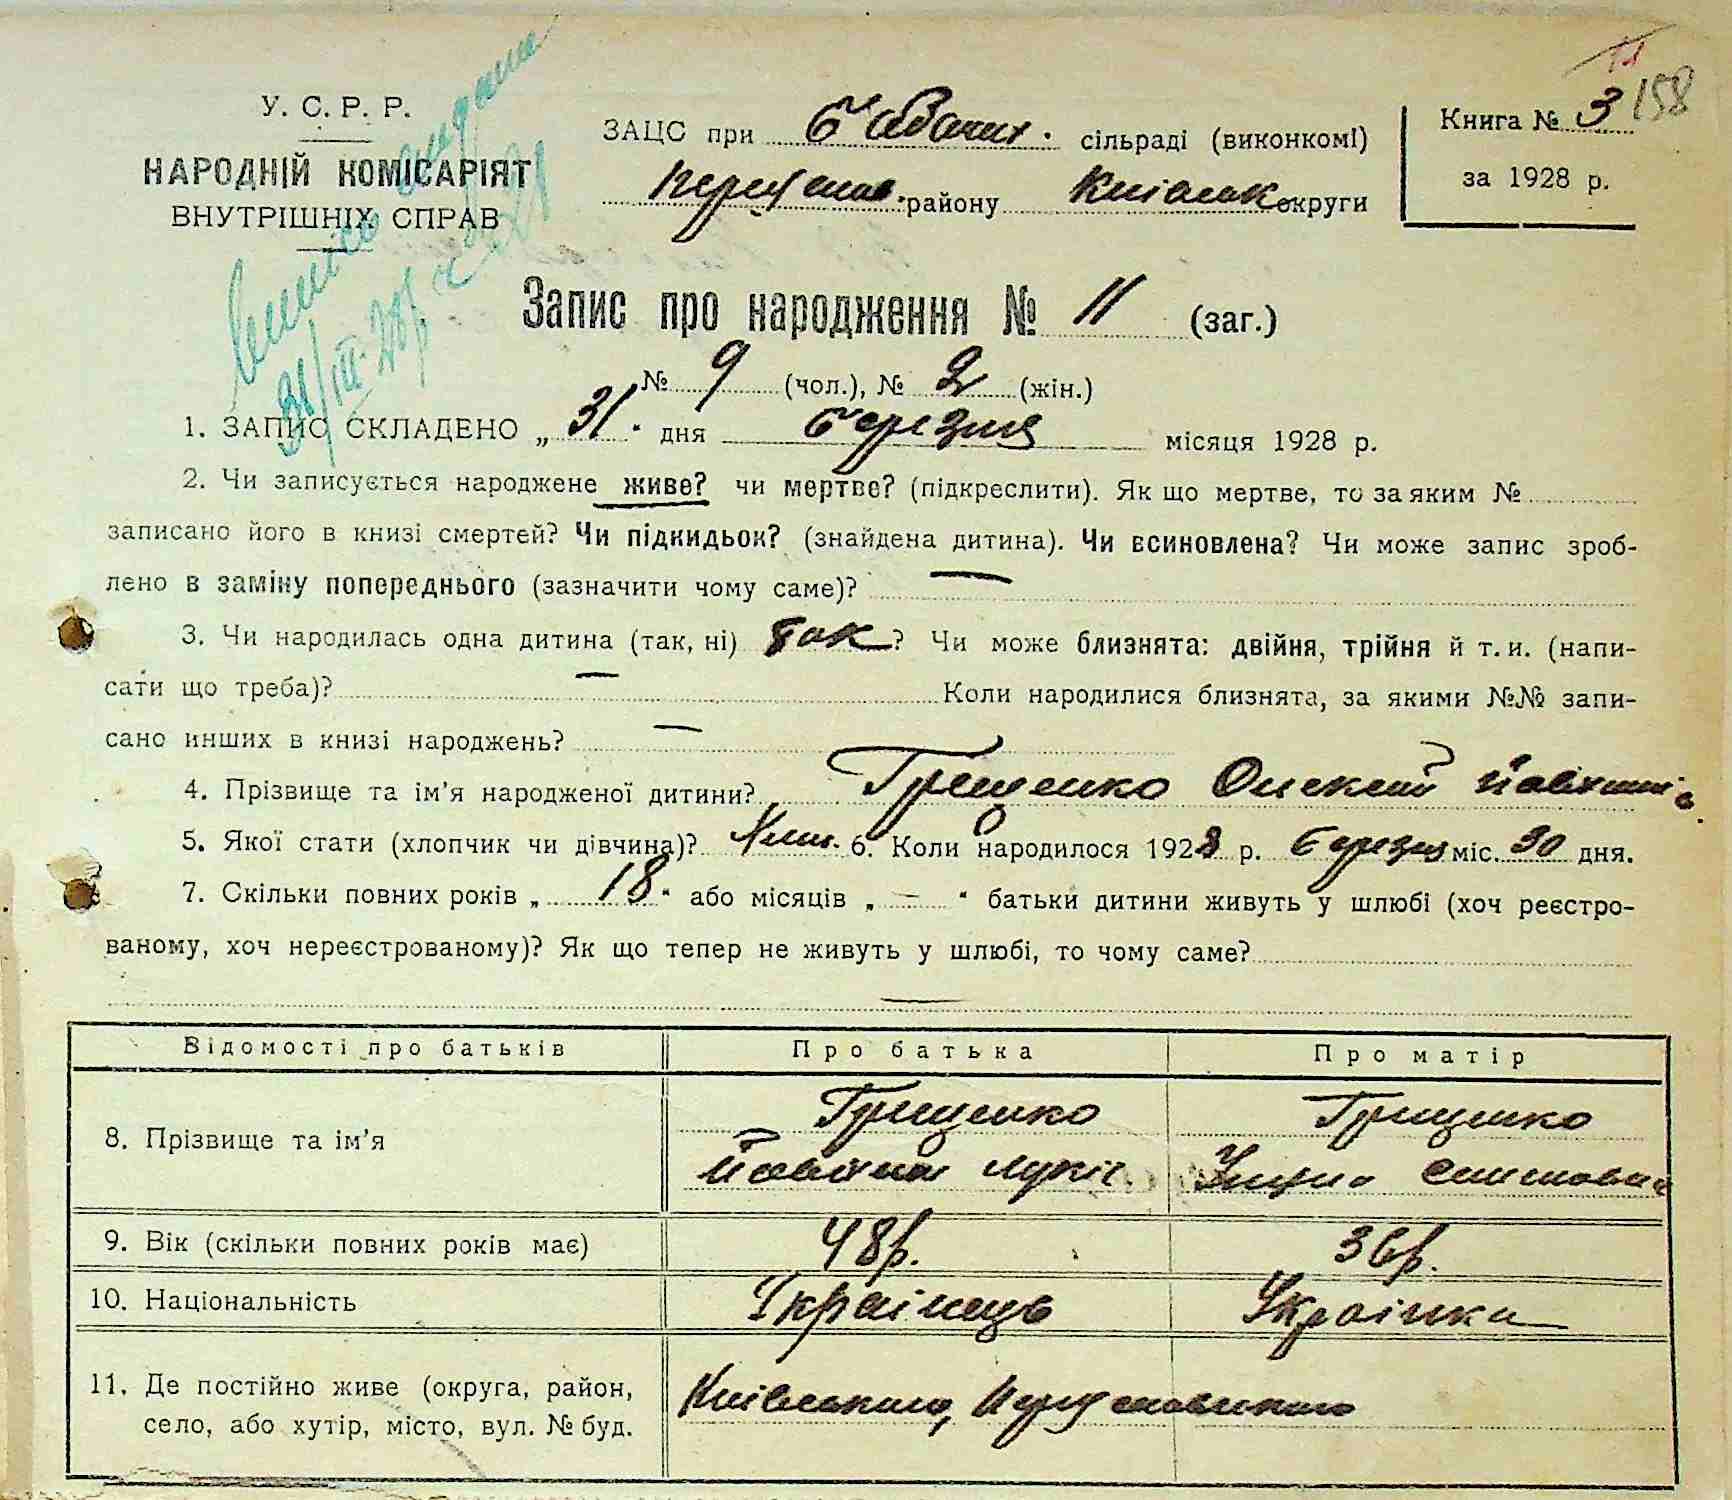 158
У. С. Р. Р.
НАРОДНІЙ КОМІСАРІЯТ
ВНУТРІШНІХ СПРАВ
31/III 28 р.
ЗАЦС при сільраді (виконкомі)
району Київськ округи
Книга № 3
за 1928 р.
Запис про народження № 11 (заг.)
№ 9 (чол.), № 2 (жін.)
1. ЗАПИС СКЛАДЕНО „ 31 “ дня березня місяця 1928 р.
2. Чи записується народжене живе? чи мертве? (підкреслити). Як що мертве, то за яким №
записано його в книзі смертей? Чи підкидьок? (знайдена дитина). Чи всиновлена? Чи може запис зроб-
лено в заміну попереднього (зазначити чому саме)? —
3. Чи народилась одна дитина (так, ні) так ? Чи може близнята: двійня, трійня й т. и. (напи-
сати що треба)? — Коли народилися близнята, за якими №№ запи-
сано инших в книзі народжень? —
4. Прізвище та ім'я народженої дитини? Грищенко Олексій
5. Якої стати (хлопчик чи дівчина)? 6. Коли народилося 1928 р. березня міс. 30 дня.
7. Скільки повних років „ 18 “ або місяців „ — “ батьки дитини живуть у шлюбі (хоч реєстро-
ваному, хоч нереєстрованому)? Як що тепер не живуть у шлюбі, то чому саме?
—
Відомості про батьків Про батька Про матір
8. Прізвище та ім'я Грищенко Грищенко
9. Вік (скільки повних років має) 48 р. 36 р.
10. Національність Українець Українка
11. Де постійно живе (округа, район,
село, або хутір, місто, вул. № буд.
Київського,